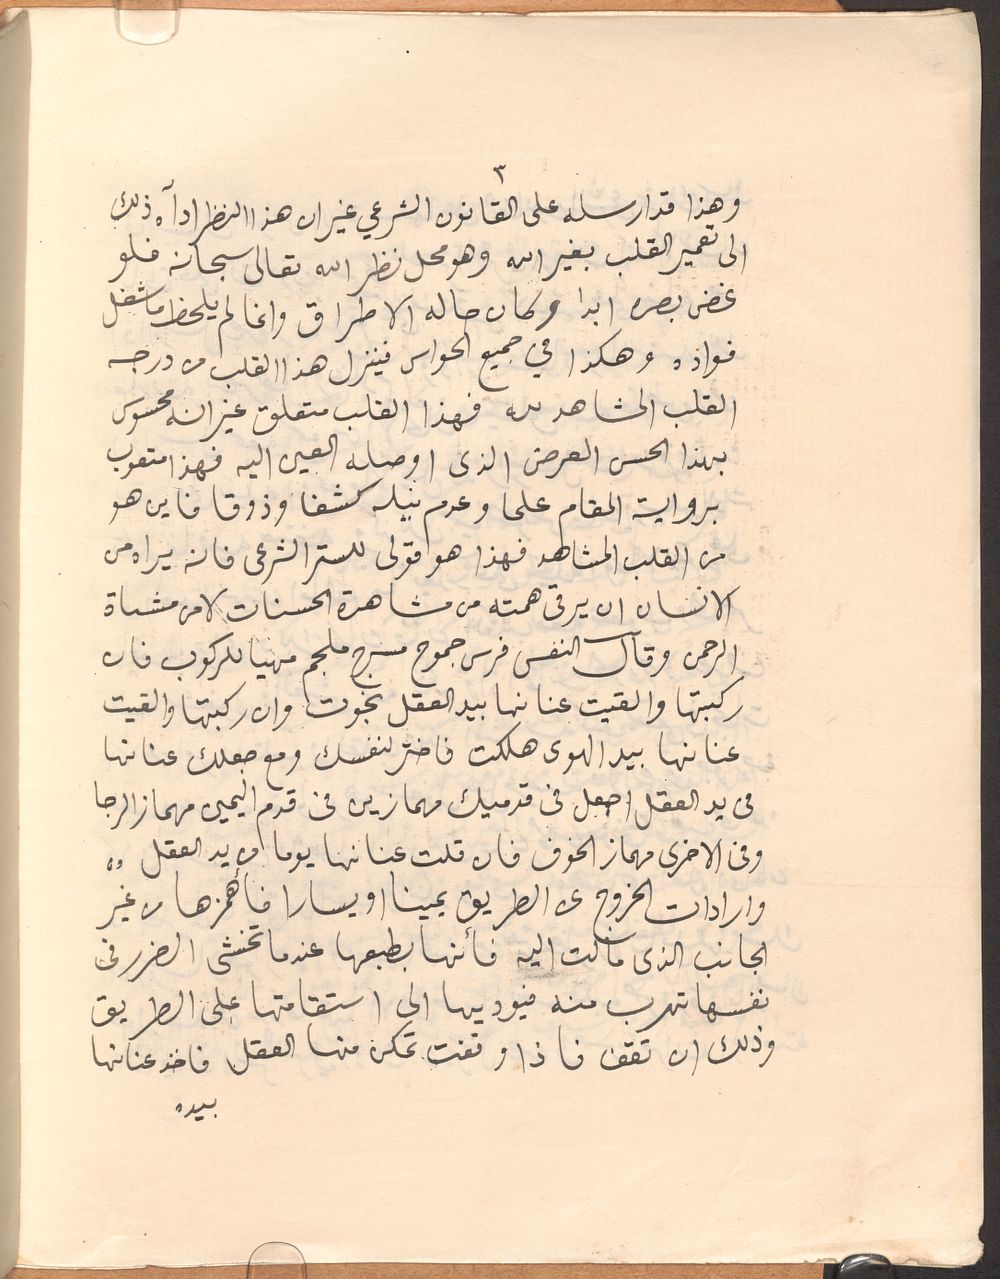 ٣
وهذا قد ارسله على القانون الشرعي غير ان هذا النظر اداه ذلك
الى تعمير القلب بغير الله وهو محل نظر الله تعالى سبحانه فلو
غض بصره ابدا وكان حاله الاطراق وانما لم يلحظ ما شغل
فواذه وهكذا في جميع الحواس فينزل هذا القلب من درجه
القلب المشاهد لله فهذا القلب متعلق غير انه محسوس
بهذا الحس العرض الذى اوصله العين اليه فهذا متعوب
برواية المقام علما وعدم نيله كشفا وذوقا فاين هو
من القلب المشاهد فهذا هو قولى للستر الشرعى فانه يراه من
الانسان ان يرقى همته من مشاهدة الحسنات لا من مشباة
الرحمن وقال النفس فرس جموح مسرج ملجم مهيا للركوب فان
ركبتها والقيت عنانها بيد العقل نجوت وان ركبتها والقيت
عنانها بيد الهوى هلكت فاختر لنفسك ومع جعلك عنانها
فى يد العقل اجعل فى قدميك مهمازين فى قدم اليمين مهماز الرجا
وفى الاخرى مهماز الخوف فان قلت عنانها يوما من يد العقل
وارادات الخروج عن الطريق يمينا او يسارا فاهمزها من غير
الجانب الذى مالت اليه فأنها بطبعها عندما تخشى الضرر فى
نفسها تهرب منه فيوديها الى استقامتها على الطريق
وذلك ان تقف فاذا وقفت تمكن منها العقل فاخذ عنانها
بيده